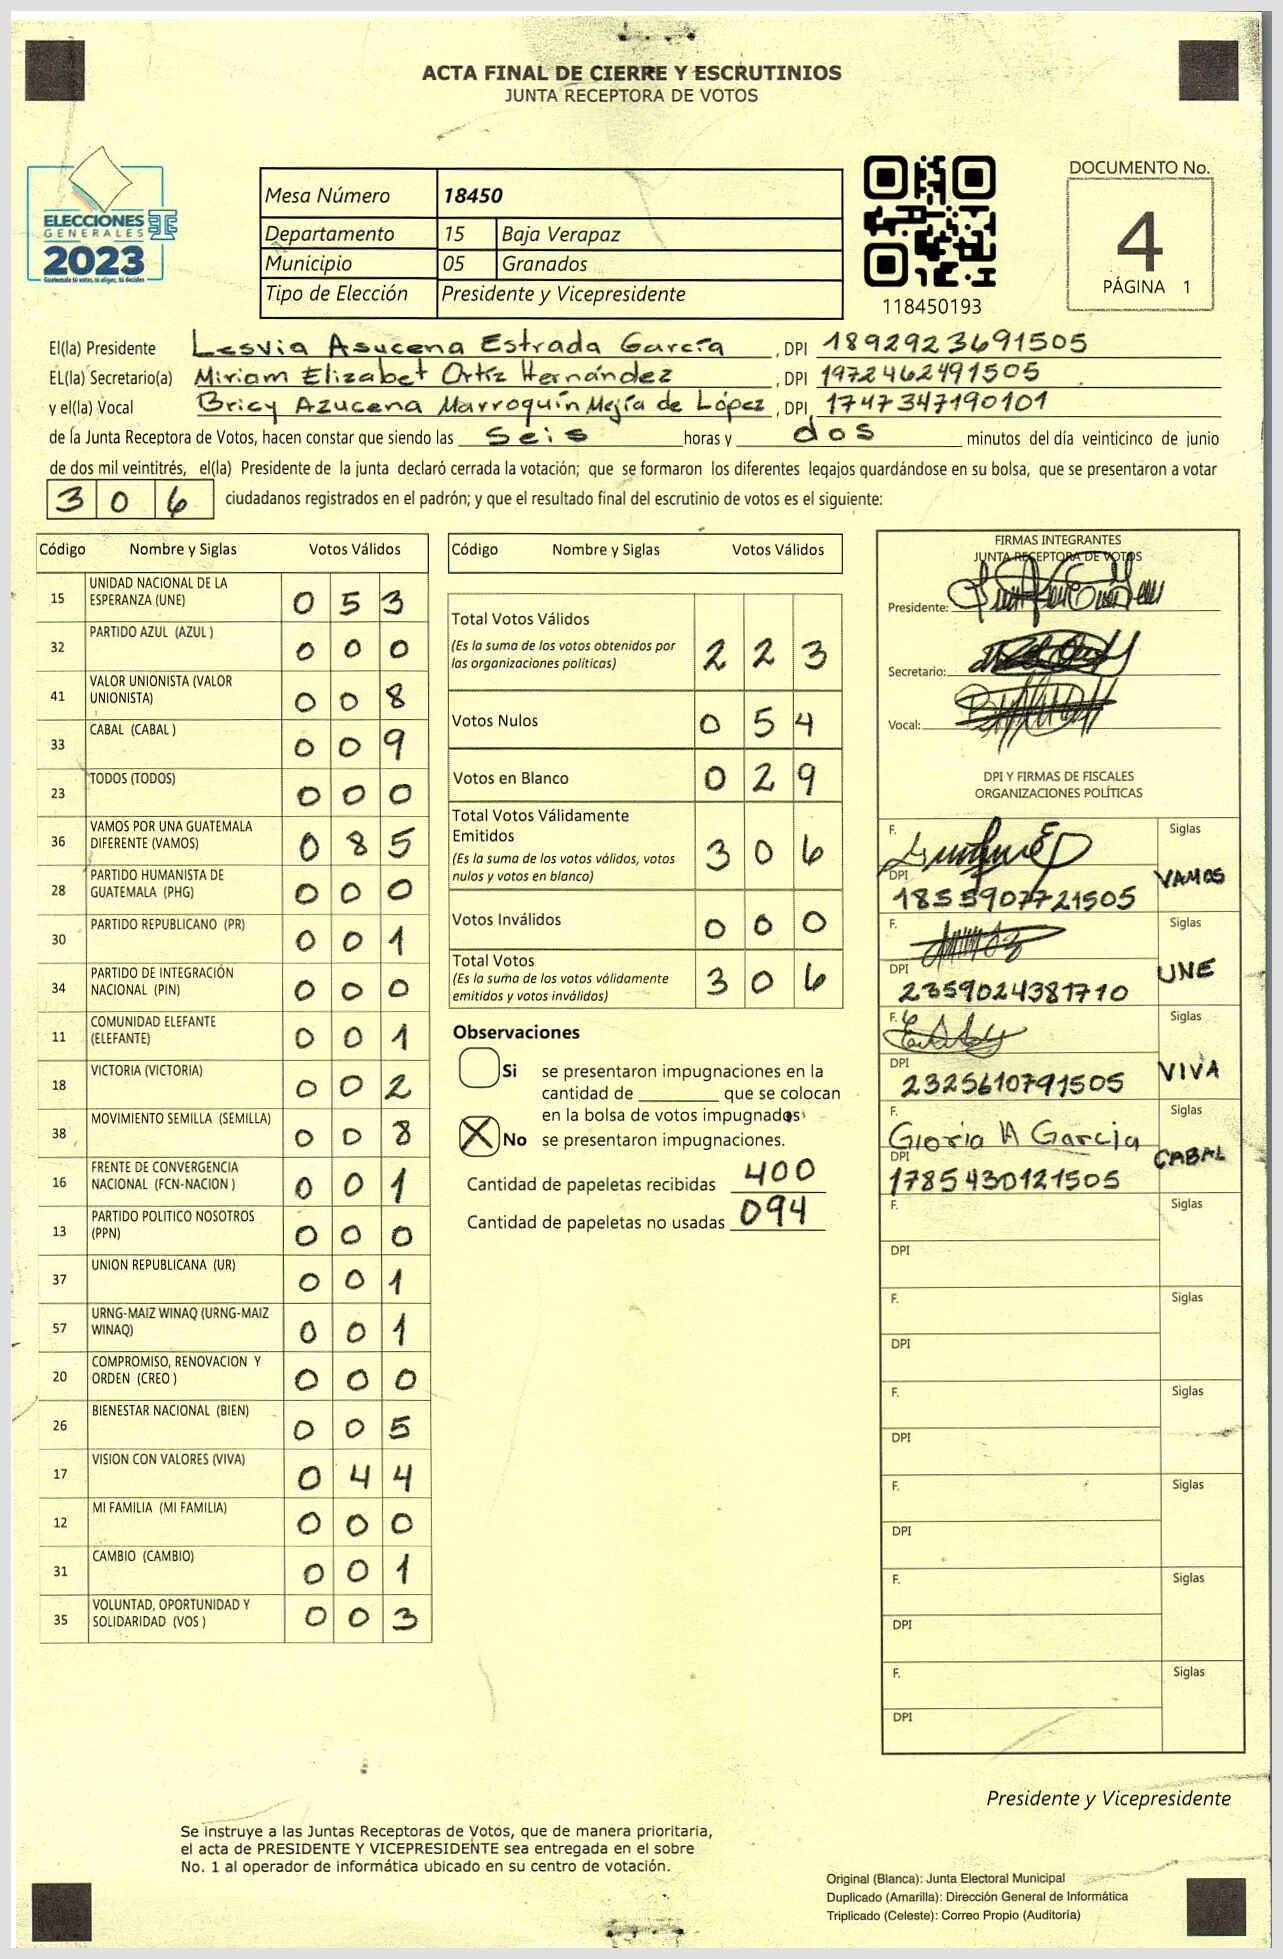 ACTA FINAL DE CIERRE Y ESCRUTINIOS
JUNTA RECEPTORA DE VOTOS
ELECCIONES
GENERALES
2023
Guatemala tú votas, tú eliges, tú decides
Mesa Número 18450
Departamento 15 Baja Verapaz
Municipio 05 Granados
Tipo de Elección Presidente y Vicepresidente
118450193
DOCUMENTO No.
4
PÁGINA 1
El(la) Presidente Lesvia Asucena Estrada García , DPI 1892923691505
EL(la) Secretario(a) Miriam Elizabet Ortíz Hernández , DPI 1972462491505
y el(la) Vocal Bricy Azucena Marroquín Mejía de López , DPI 1747347190101
de la Junta Receptora de Votos, hacen constar que siendo las seis horas y dos minutos del día veinticinco de junio
de dos mil veintitrés, el(la) Presidente de la junta declaró cerrada la votación; que se formaron los diferentes legajos quardándose en su bolsa, que se presentaron a votar
306 ciudadanos registrados en el padrón; y que el resultado final del escrutinio de votos es el siguiente:
Código Nombre y Siglas Votos Válidos
15 UNIDAD NACIONAL DE LA ESPERANZA (UNE) 053
32 PARTIDO AZUL (AZUL ) 000
41 VALOR UNIONISTA (VALOR UNIONISTA) 008
33 CABAL (CABAL ) 009
23 TODOS (TODOS) 000
36 VAMOS POR UNA GUATEMALA DIFERENTE (VAMOS) 085
28 PARTIDO HUMANISTA DE GUATEMALA (PHG) 000
30 PARTIDO REPUBLICANO (PR) 001
34 PARTIDO DE INTEGRACIÓN NACIONAL (PIN) 000
11 COMUNIDAD ELEFANTE (ELEFANTE) 001
18 VICTORIA (VICTORIA) 002
38 MOVIMIENTO SEMILLA (SEMILLA) 008
16 FRENTE DE CONVERGENCIA NACIONAL (FCN-NACION ) 001
13 PARTIDO POLITICO NOSOTROS (PPN) 000
37 UNION REPUBLICANA (UR) 001
57 URNG-MAIZ WINAQ (URNG-MAIZ WINAQ) 001
20 COMPROMISO, RENOVACION Y ORDEN (CREO ) 000
26 BIENESTAR NACIONAL (BIEN) 005
17 VISION CON VALORES (VIVA) 044
12 MI FAMILIA (MI FAMILIA) 000
31 CAMBIO (CAMBIO) 001
35 VOLUNTAD, OPORTUNIDAD Y SOLIDARIDAD (VOS ) 003
Código Nombre y Siglas Votos Válidos
Total Votos Válidos
(Es la suma de los votos obtenidos por
las organizaciones políticas) 223
Votos Nulos 054
Votos en Blanco 029
Total Votos Válidamente
Emitidos
(Es la suma de los votos válidos, votos
nulos y votos en blanco) 306
Votos Inválidos 000
Total Votos
(Es la suma de los votos válidamente
emitidos y votos inválidos) 306
Observaciones
Si se presentaron impugnaciones en la
cantidad de ________ que se colocan
en la bolsa de votos impugnados
X No se presentaron impugnaciones.
Cantidad de papeletas recibidas 400
Cantidad de papeletas no usadas 094
FIRMAS INTEGRANTES
JUNTA RECEPTORA DE VOTOS
Presidente:
Secretario:
Vocal:
DPI Y FIRMAS DE FISCALES
ORGANIZACIONES POLÍTICAS
F. Siglas
DPI VAMOS
1855907721505
F. Siglas
DPI UNE
2359024381710
F. Siglas
DPI VIVA
2325610791505
F. Siglas
Gloria A Garcia
DPI CABAL
1785430121505
F. Siglas
DPI
F. Siglas
DPI
F. Siglas
DPI
F. Siglas
DPI
F. Siglas
DPI
F. Siglas
DPI
Presidente y Vicepresidente
Se instruye a las Juntas Receptoras de Votos, que de manera prioritaria,
el acta de PRESIDENTE Y VICEPRESIDENTE sea entregada en el sobre
No. 1 al operador de informática ubicado en su centro de votación.
Original (Blanca): Junta Electoral Municipal
Duplicado (Amarilla): Dirección General de Informática
Triplicado (Celeste): Correo Propio (Auditoría)